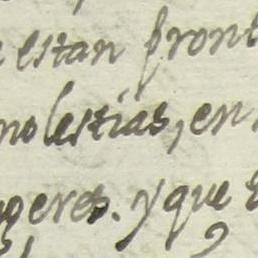 estan pront
molestias, en
geres. y que